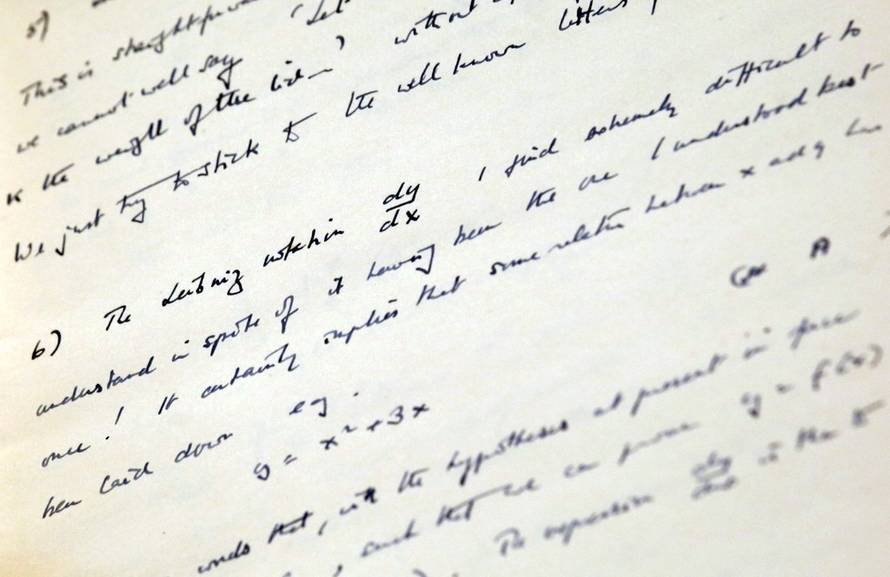 5)
This is straightforward
we cannot well say 'Let
the weight of the
We just try to stick to the well known letters
6) The Leibniz notation dy/dx I find extremely difficult to
understand in spite of it having been the one I understood best
once! It certainly implies that some relation between x and y has
been laid down e.g.
y = x² + 3x
words that, with the hypotheses at present in force
, such that we can prove y = f(x)
. The expression dy/dx is then